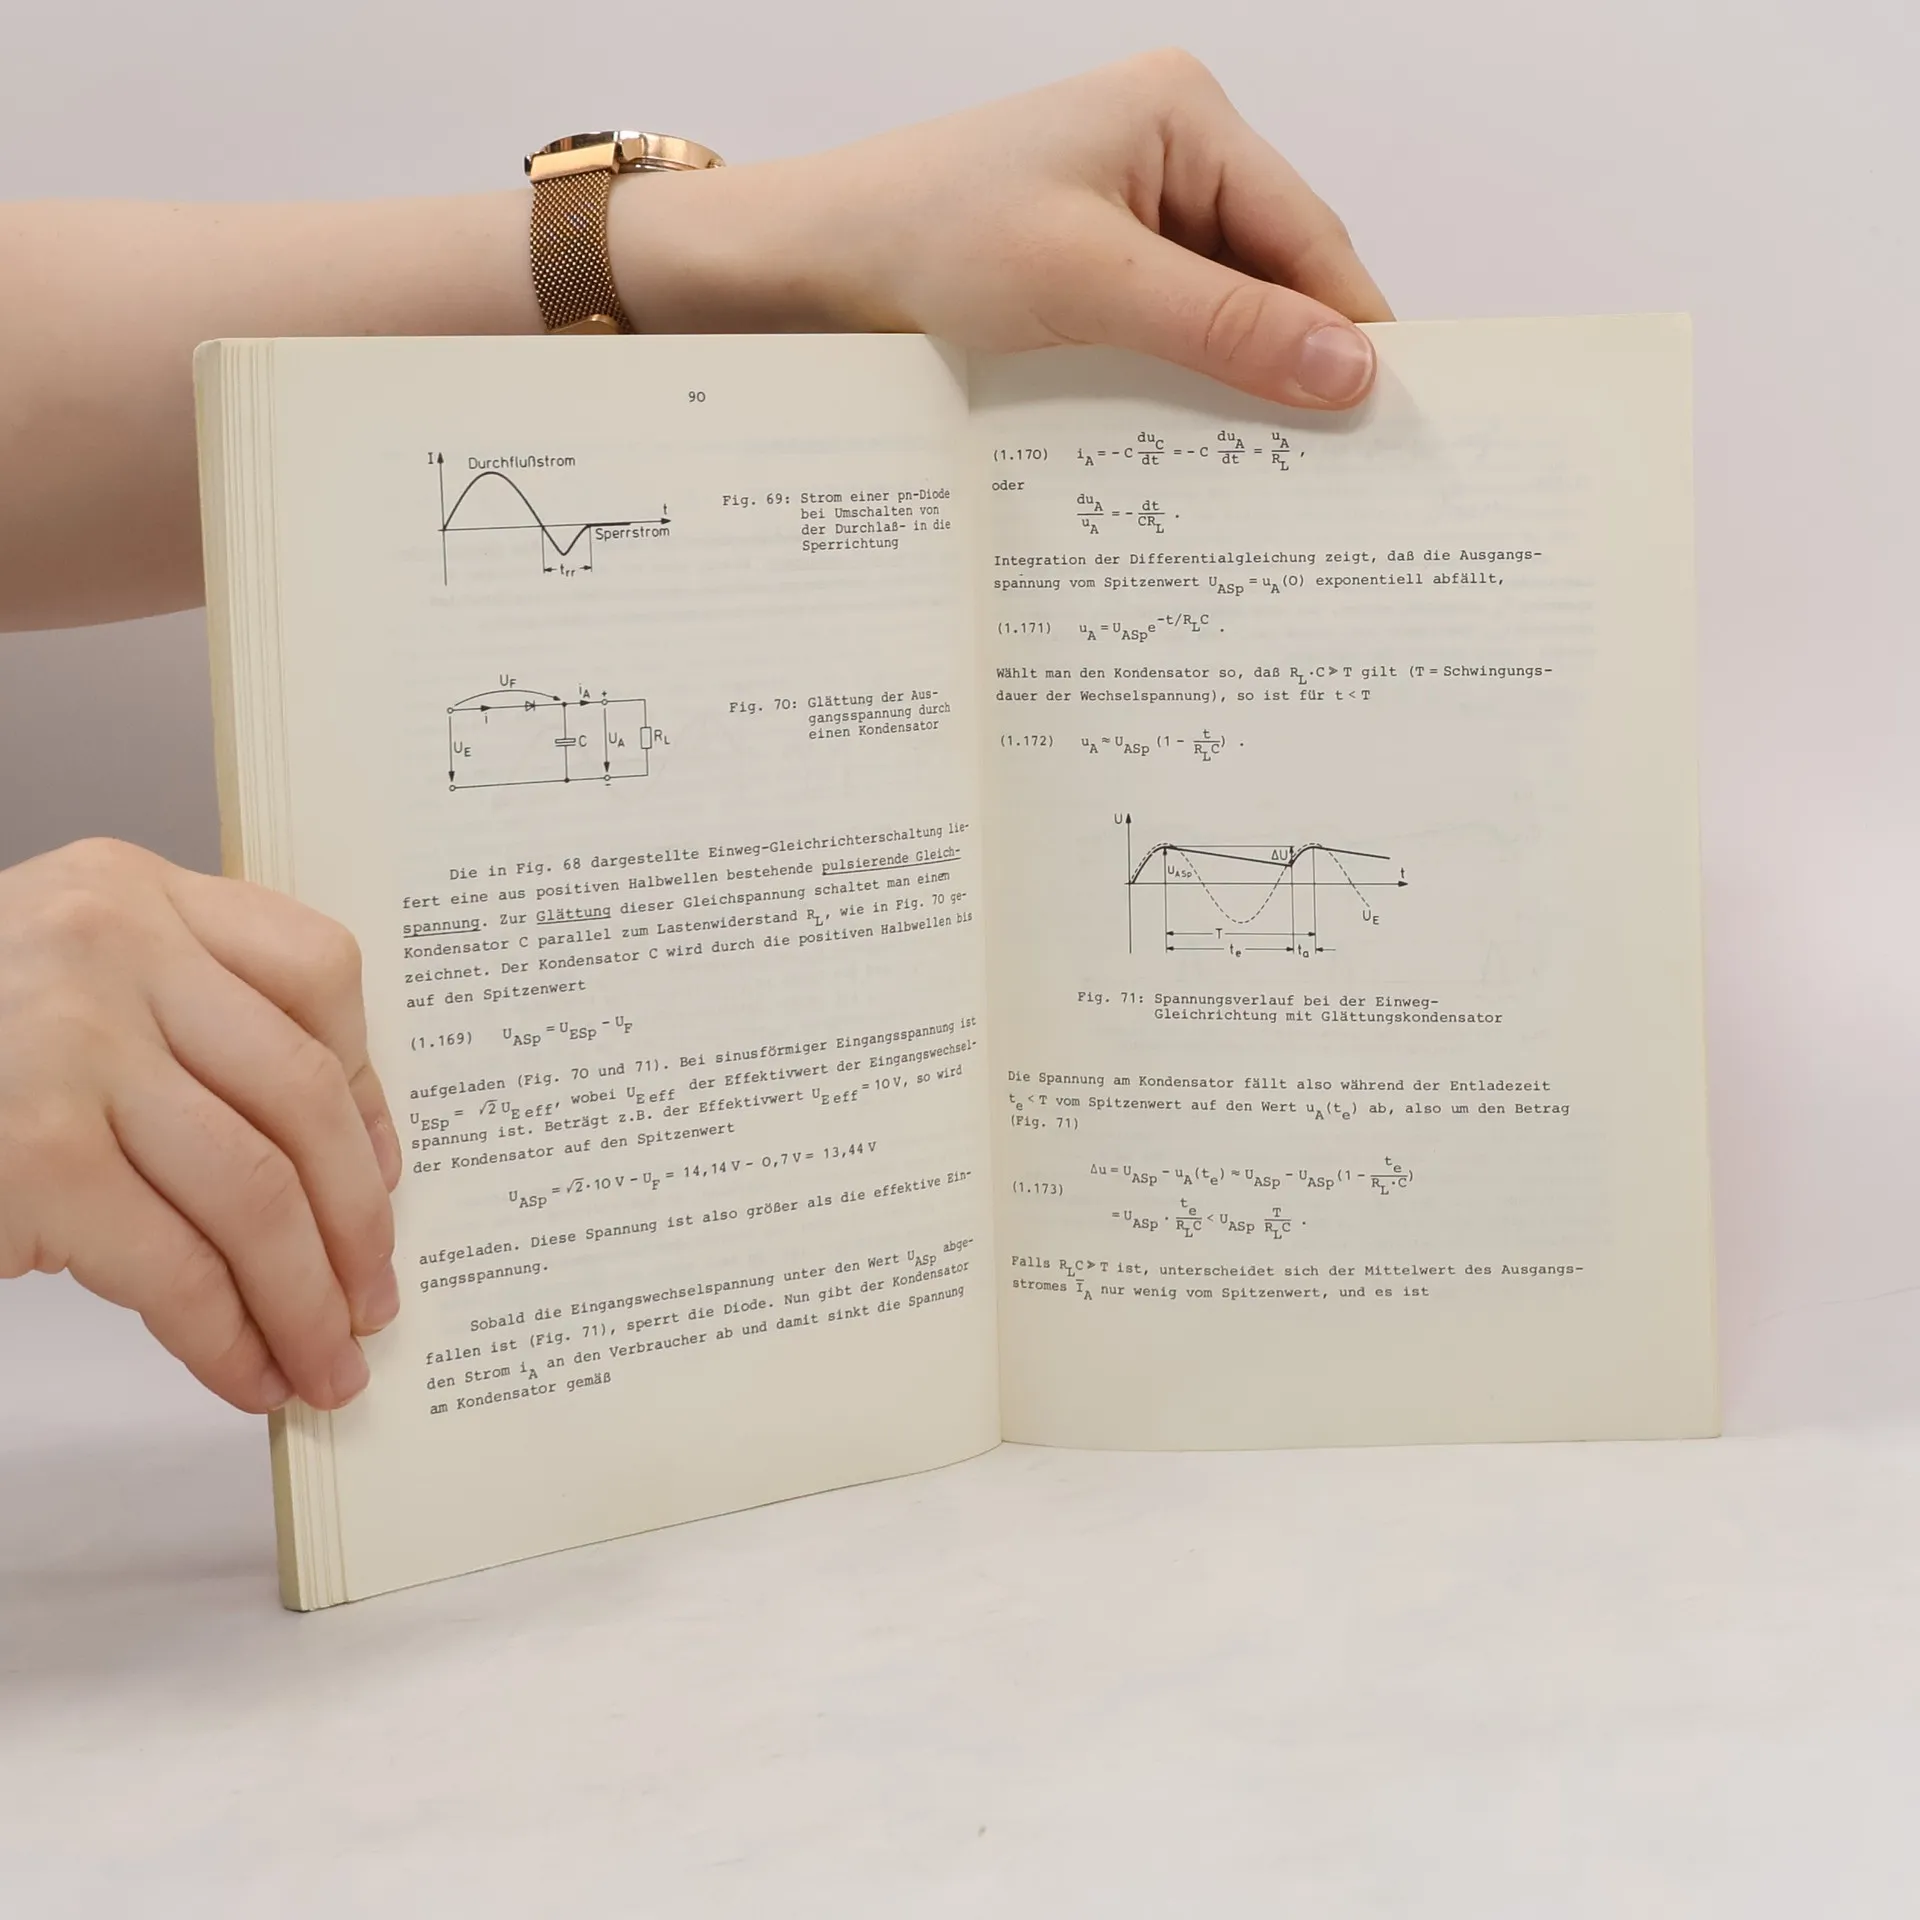 90
I
Durchflußstrom
t
Sperrstrom
trr
Fig. 69: Strom einer pn-Diode
bei Umschalten von
der Durchlaß- in die
Sperrichtung
UF
iA +
i
UE
C
UA
RL
-
Fig. 70: Glättung der Aus-
gangsspannung durch
einen Kondensator
Die in Fig. 68 dargestellte Einweg-Gleichrichterschaltung lie-
fert eine aus positiven Halbwellen bestehende pulsierende Gleich-
spannung. Zur Glättung dieser Gleichspannung schaltet man einen
Kondensator C parallel zum Lastenwiderstand RL, wie in Fig. 70 ge-
zeichnet. Der Kondensator C wird durch die positiven Halbwellen bis
auf den Spitzenwert
(1.169) UASp = UESp - UF
aufgeladen (Fig. 70 und 71). Bei sinusförmiger Eingangsspannung ist
UESp = √2 UE eff, wobei UE eff der Effektivwert der Eingangswechsel-
spannung ist. Beträgt z.B. der Effektivwert UE eff = 10 V, so wird
der Kondensator auf den Spitzenwert
UASp = √2·10 V - UF = 14,14 V - 0,7 V = 13,44 V
aufgeladen. Diese Spannung ist also größer als die effektive Ein-
gangsspannung.
Sobald die Eingangswechselspannung unter den Wert UASp abge-
fallen ist (Fig. 71), sperrt die Diode. Nun gibt der Kondensator
den Strom iA an den Verbraucher ab und damit sinkt die Spannung
am Kondensator gemäß
(1.170) iA = - C duC/dt = - C duA/dt = uA/RL ,
oder
duA/uA = - dt/CRL .
Integration der Differentialgleichung zeigt, daß die Ausgangs-
spannung vom Spitzenwert UASp = uA(0) exponentiell abfällt,
(1.171) uA = UASp e^-t/RLC .
Wählt man den Kondensator so, daß RL·C ≫ T gilt (T = Schwingungs-
dauer der Wechselspannung), so ist für t < T
(1.172) uA ≈ UASp (1 - t/RLC) .
U
ΔU
UASp
t
UE
T
te
ta
Fig. 71: Spannungsverlauf bei der Einweg-
Gleichrichtung mit Glättungskondensator
Die Spannung am Kondensator fällt also während der Entladezeit
te < T vom Spitzenwert auf den Wert uA(te) ab, also um den Betrag
(Fig. 71)
Δu = UASp - uA(te) ≈ UASp - UASp (1 - te/RL·C)
(1.173)
= UASp · te/RLC < UASp T/RLC .
Falls RLC ≫ T ist, unterscheidet sich der Mittelwert des Ausgangs-
stromes ĪA nur wenig vom Spitzenwert, und es ist